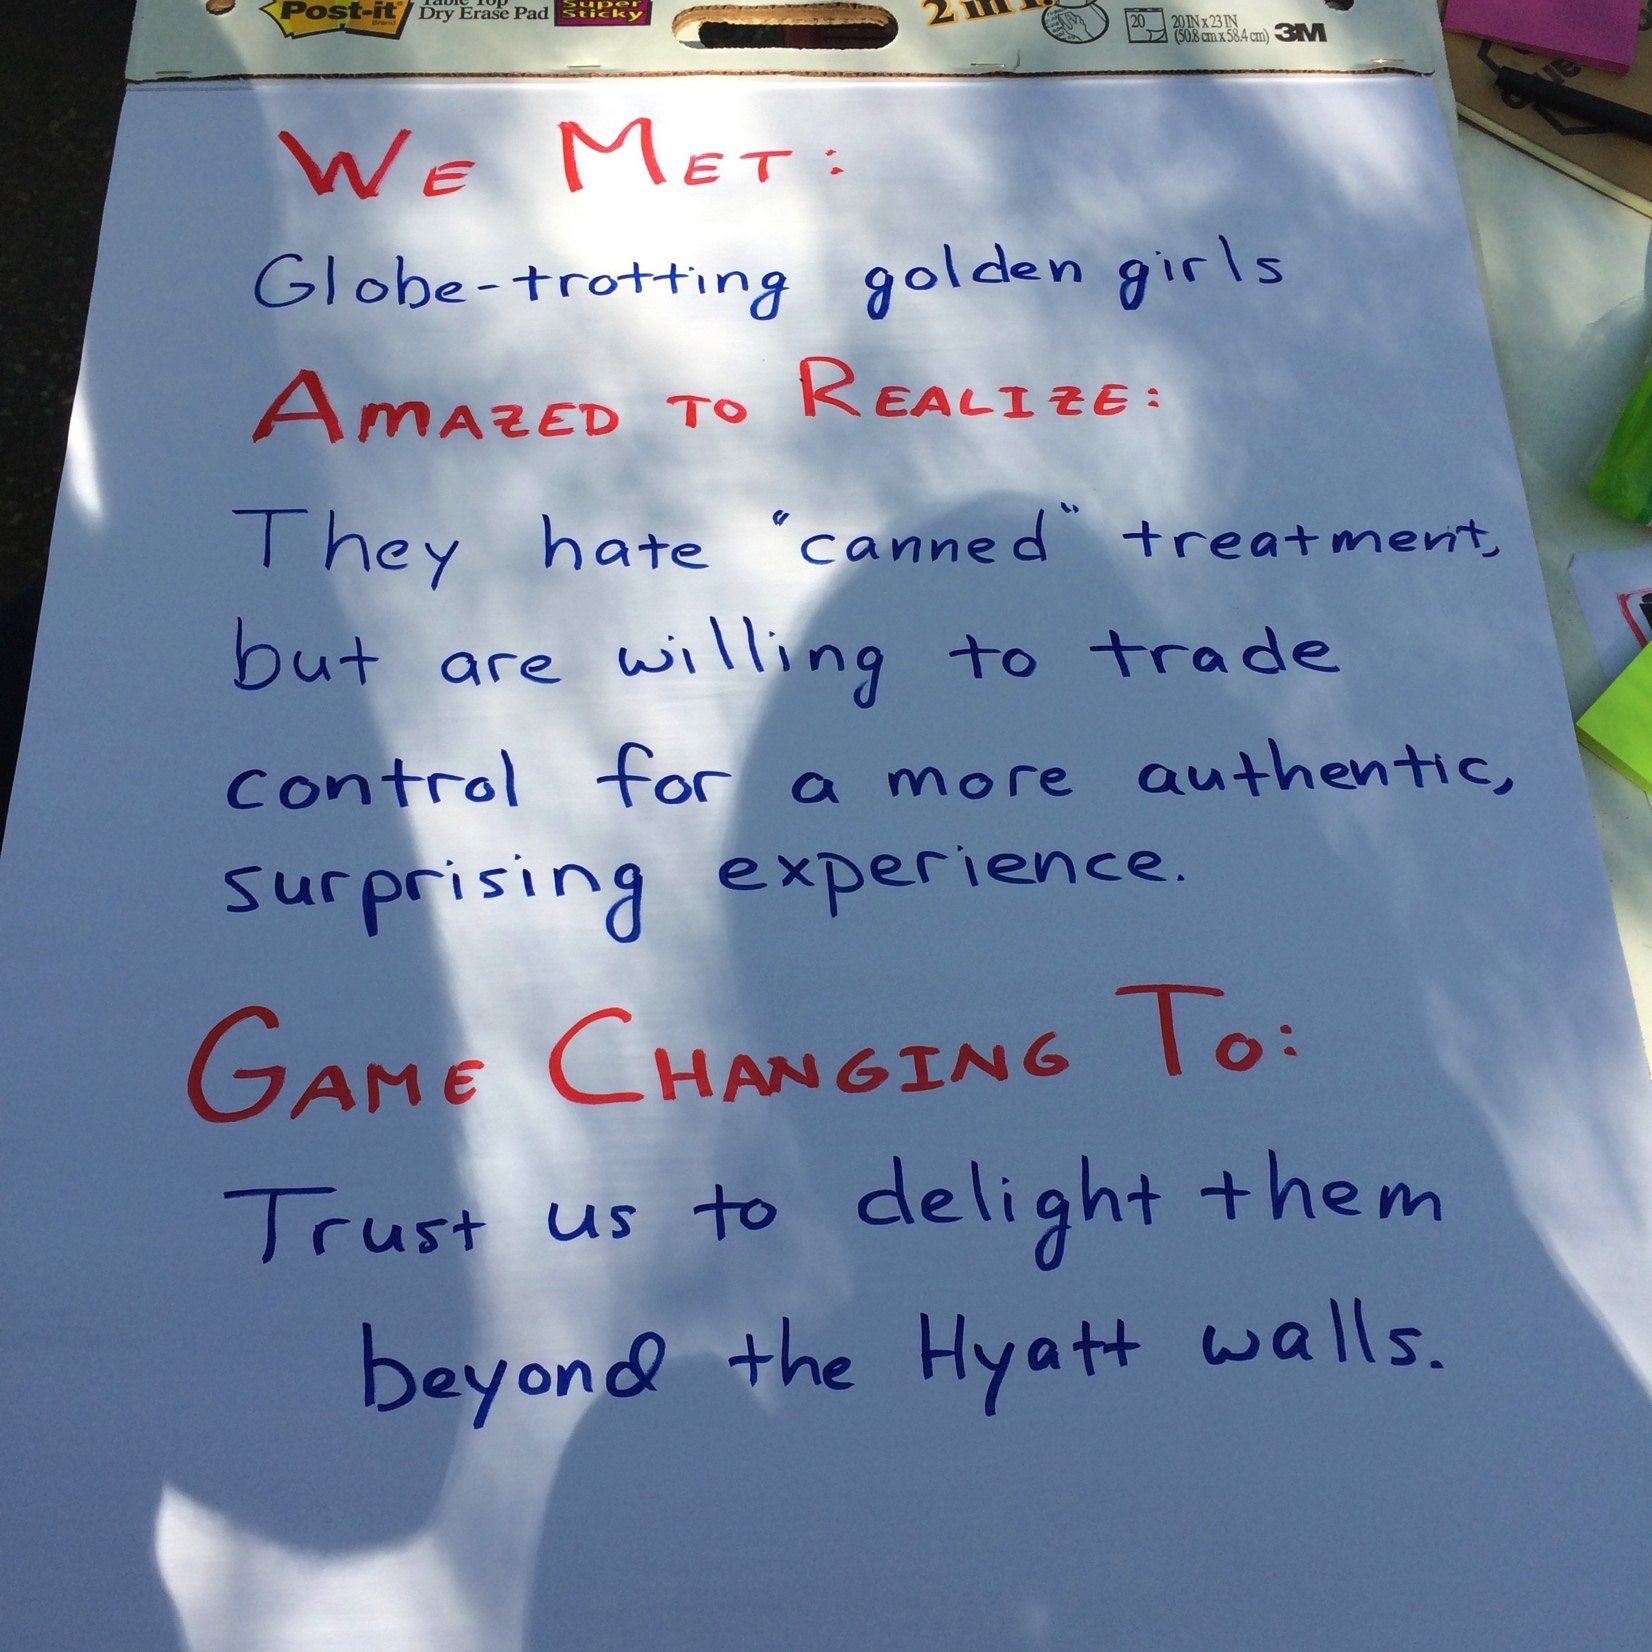 Post-it
Brand
Dry Erase Pad
Super
Sticky
2 in 1
20
20 IN x 23 IN
(50.8 cm x 58.4 cm)
3M
WE MET:
Globe-trotting golden girls
AMAZED TO REALIZE:
They hate "canned" treatment,
but are willing to trade
control for a more authentic,
surprising experience.
GAME CHANGING TO:
Trust us to delight them
beyond the Hyatt walls.